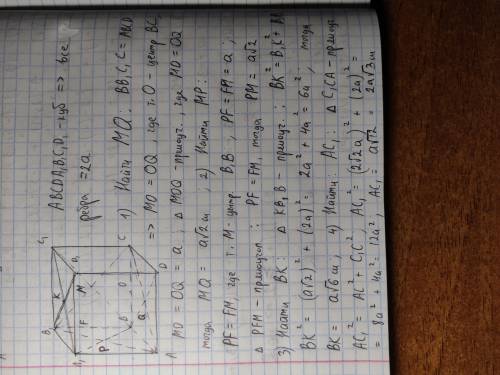 ABCDA₁B₁C₁D₁ - куб => все
ребра = 2a
1) Найти MQ: BB₁C₁C = ABCD
=> MO = OQ, где т. O - центр BC,
MO = OQ = a; △ MOQ - прямоуг., где MO = OQ
тогда MQ = a√2 ш; 2) Найти MP:
PF = FM, где т. M - центр B₁B; PF = FM = a;
△ PFM - прямоугол: PF = FM, тогда PM = a√2
3) Найти BK: △ KB₁B - прямоуг.; BK² = B₁C² +
BK² = (a√2)² + (2a)² = 2a² + 4a² = 6a², тогда
BK = a√6 ш, 4) Найти: AC₁: △ C₁CA - прямоуг.
AC₁² = AC² + C₁C², AC₁² = (2√2a)² + (2a)² =
= 8a² + 4a² = 12a², AC₁ = a√12 = 2a√3 ш
B₁
C₁
K
A₁
D₁
F
M
P
B
O
C
Q
A
D